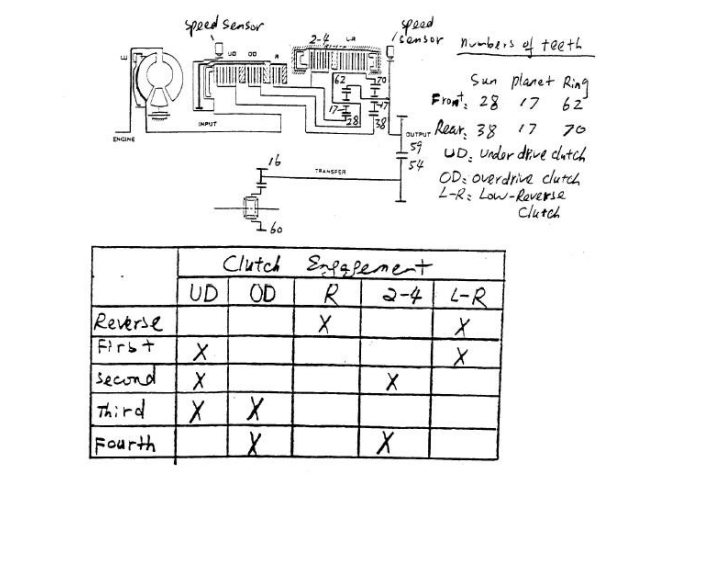 speed sensor
speed
sensor
Numbers of teeth
2-4
L-R
UD OD R
62
70
Sun planet Ring
Front: 28 17 62
17
28
47
38
INPUT
ENGINE
OUTPUT
Rear: 38 17 70
59
54
UD: Under drive clutch
OD: overdrive clutch
L-R: Low-Reverse
Clutch
16
TRANSFER
60
Clutch Engagement
UD OD R 2-4 L-R
Reverse X X
First X X
Second X X
Third X X
Fourth X X